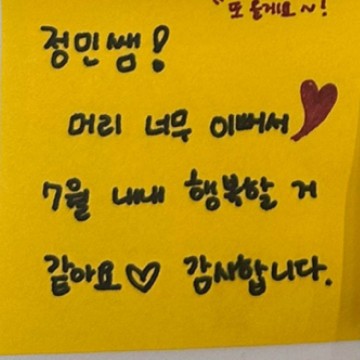 또 올게요~!
정민쌤!
머리 너무 이뻐서♥
7월 내내 행복할 거
같아요♡ 감사합니다.